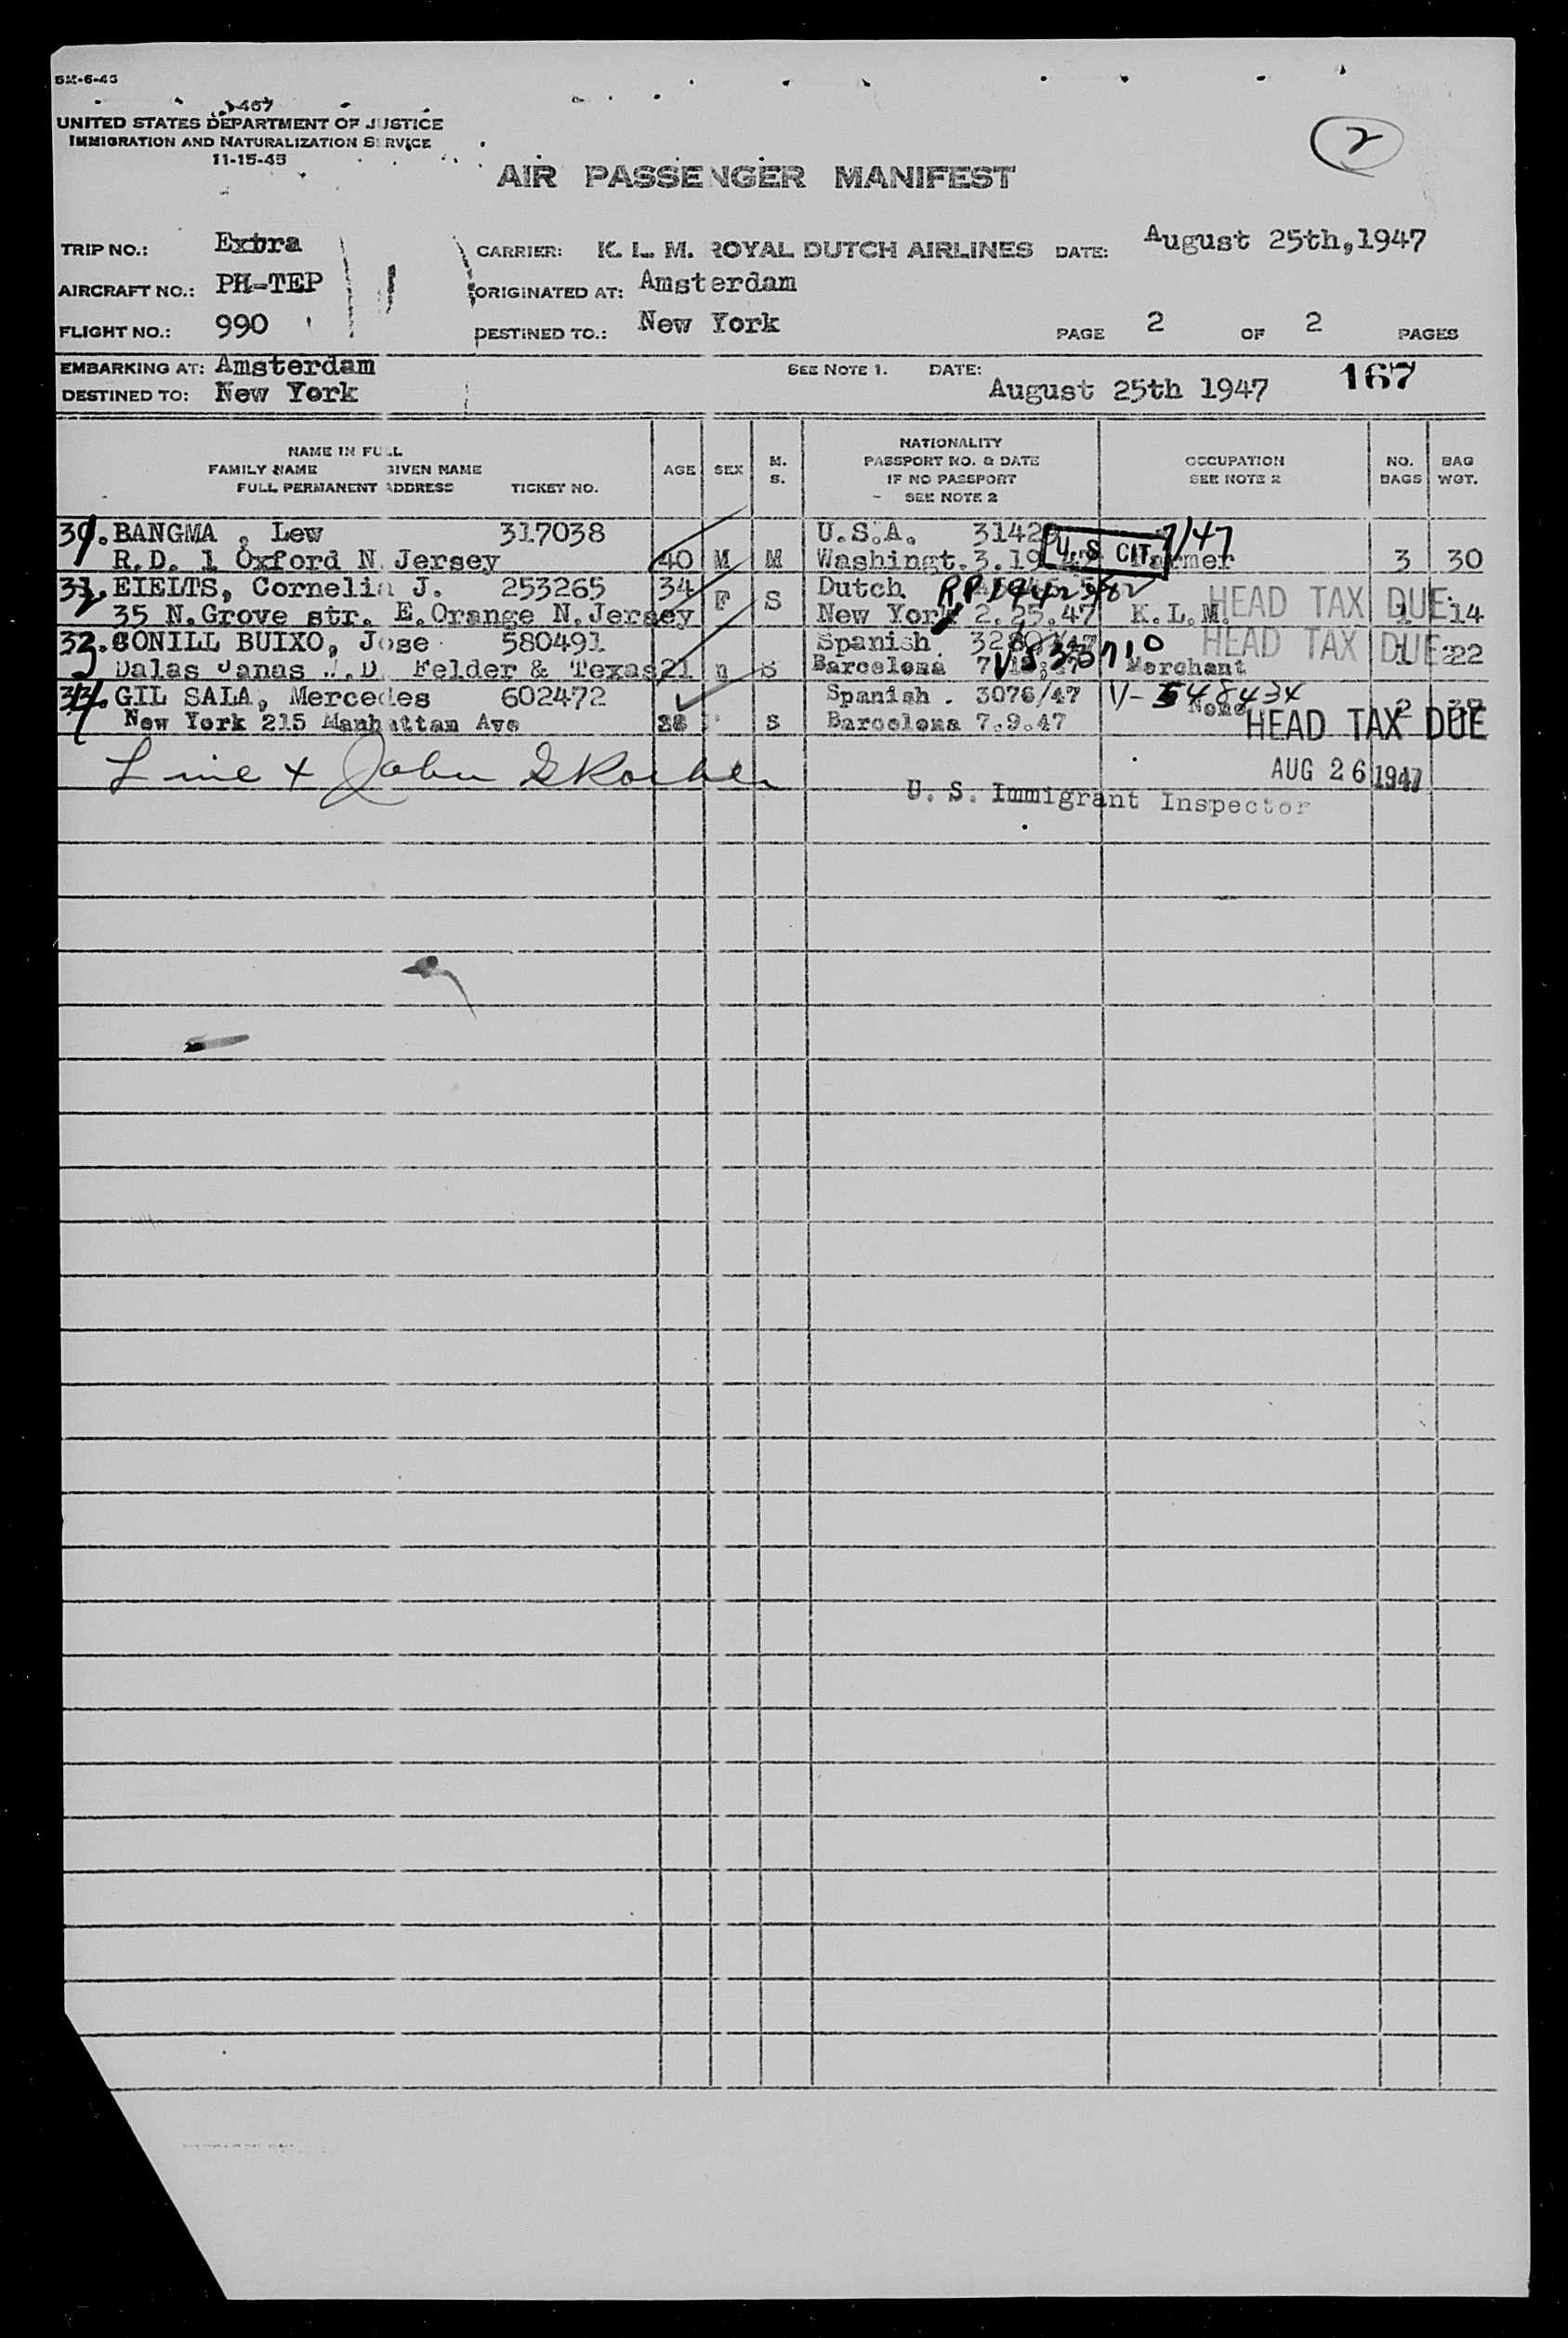 5M-6-45
UNITED STATES DEPARTMENT OF JUSTICE
IMMIGRATION AND NATURALIZATION SERVICE
11-15-45
2
AIR PASSENGER MANIFEST
TRIP NO.: Extra CARRIER: K. L. M. ROYAL DUTCH AIRLINES DATE: August 25th,1947
AIRCRAFT NO.: PH-TEP ORIGINATED AT: Amsterdam
FLIGHT NO.: 990 DESTINED TO.: New York PAGE 2 OF 2 PAGES
EMBARKING AT: Amsterdam SEE NOTE 1. DATE: August 25th 1947 167
DESTINED TO: New York
NAME IN FULL
FAMILY NAME GIVEN NAME
FULL PERMANENT ADDRESS TICKET NO. AGE SEX M. S. NATIONALITY PASSPORT NO. & DATE IF NO PASSPORT SEE NOTE 2 OCCUPATION SEE NOTE 2 NO. BAGS BAG WGT.
BANGMA , Lew 317038 U.S.A. 7/47
R.D. 1 Oxford N Jersey 40 M M Washingt. 3.19 U.S CIT. Farmer 3 30
EIELTS, Cornelia J. 253265 34 F S Dutch HEAD TAX DUE
35 N.Grove str. E.Orange N.Jersey New York 2.25.47 K.L.M. 1 14
BONILL BUIXO, Jose 580491 Spanish HEAD TAX DUE
Felder & Texas 21 S Barcelona Merchant 1 22
GIL SALA, Mercedes 602472 Spanish . 3076/47 V-548434
New York 215 Manhattan Ave S Barcelona 7.9.47 None 2
HEAD TAX DUE
Line + John
AUG 26 1947
U. S. Immigrant Inspector